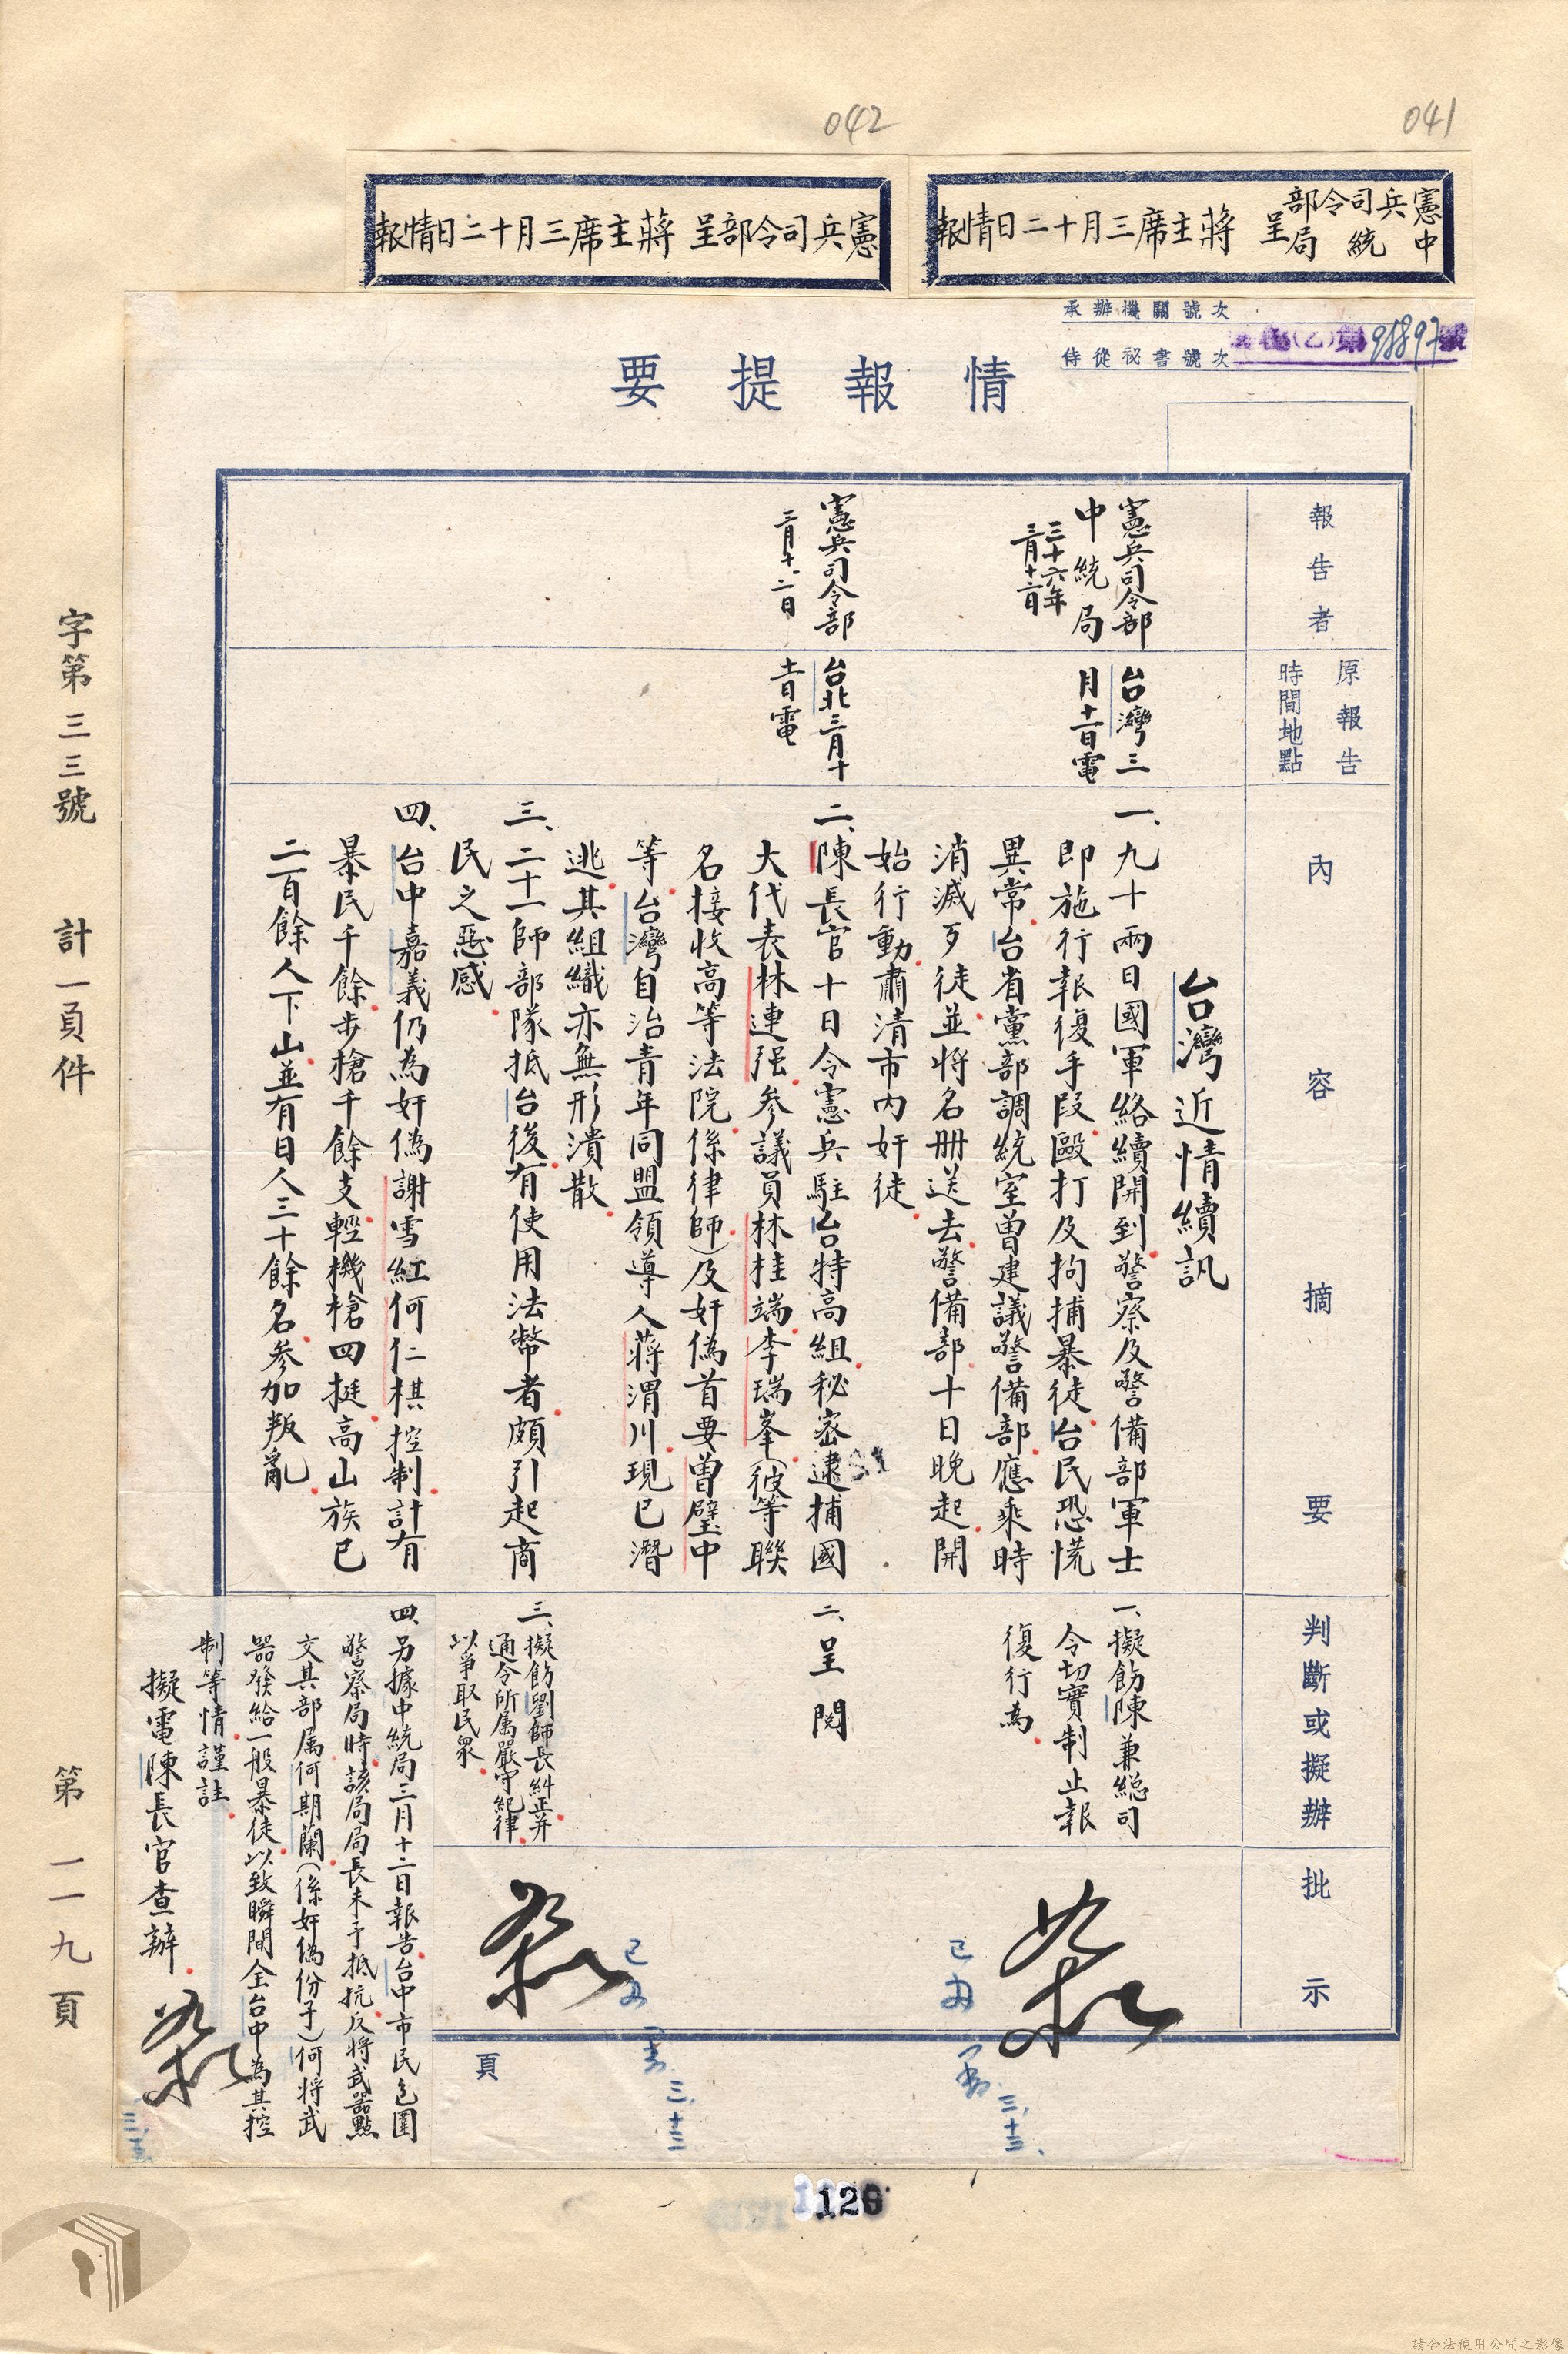 041
042
憲兵司令部
中統局
呈 蔣主席三月十二日情報
憲兵司令部呈 蔣主席三月十二日情報
承辦機關號次
侍從祕書號次
(乙)第98897號
情報提要
報告者
原報告
時間地點
內容摘要
判斷或擬辦
批示
憲兵司令部
中統局
三十六年
三月十二日
台灣三
月十一日電
台灣近情續訊
一、九十兩日國軍絡續開到警察及警備部軍士
即施行報復手段毆打及拘捕暴徒台民恐慌
異常台省黨部調統室曾建議警備部應乘時
消滅歹徒並將名冊送去警備部十日晚起開
始行動肅清市內奸徒
一、擬飭陳兼總司
令切實制止報
復行為
憲兵司令部
三月十二日
台北三月十
一日電
二、陳長官十日令憲兵駐台特高組秘密逮捕國
大代表林連強參議員林桂端李瑞峯(彼等聯
名接收高等法院係律師)及奸偽首要曾璧中
等台灣自治青年同盟領導人蔣渭川現已潛
逃其組織亦無形潰散
二、呈閱
三、二十一師部隊抵台後有使用法幣者頗引起商
民之惡感
三、擬飭劉師長糾正并
通令所属嚴守紀律
以爭取民衆
四、台中嘉義仍為奸偽謝雪紅何仁棋控制計有
暴民千餘步槍千餘支輕機槍四挺高山族已
二百餘人下山並有日人三十餘名參加叛亂
四、另據中統局三月十二日報告台中市民包圍
警察局時該局局長未予抵抗反將武器點
交其部属何期蘭(係奸偽份子)何將武
器發給一般暴徒以致瞬間全台中為其控
制等情謹註
擬電陳長官查辦
三、十三、
三、十三
頁
字第三三號 計一頁件 第一一九頁
120
請合法使用公開之影像